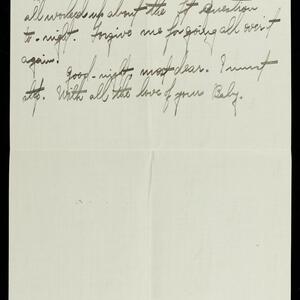 all worked up about the Ft question
to-night. Forgive me for going all over it
again!
Good-night, most dear. I must
stop. With all the love of your Baby.